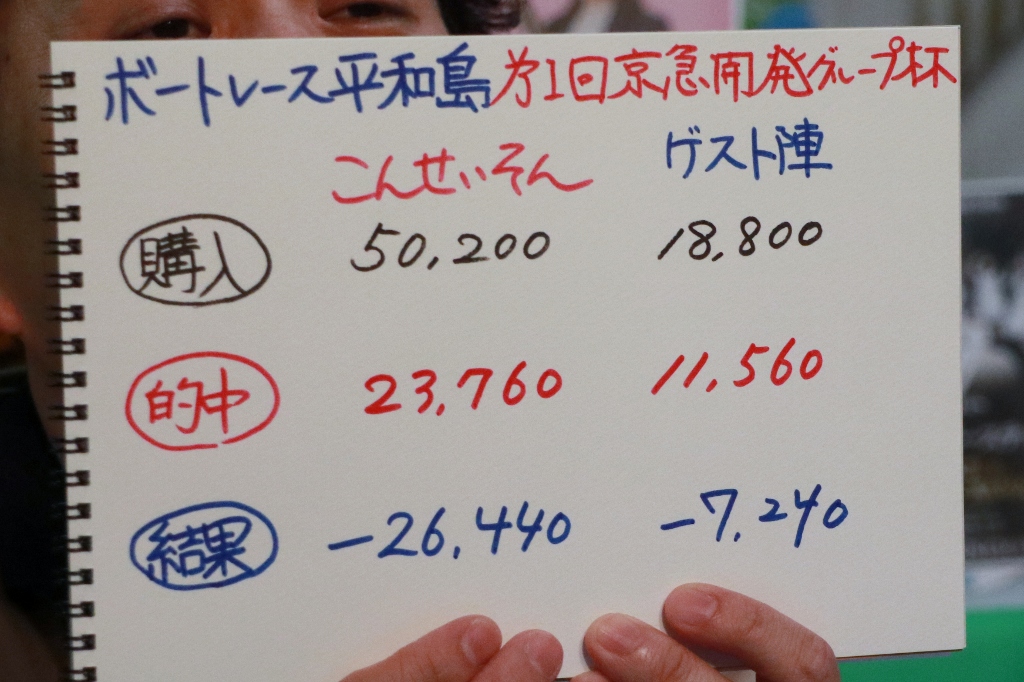 ボートレース平和島 第1回京急開発グループ杯
こんせいそん ゲスト陣
購入 50,200 18,800
的中 23,760 11,560
結果 -26,440 -7,240